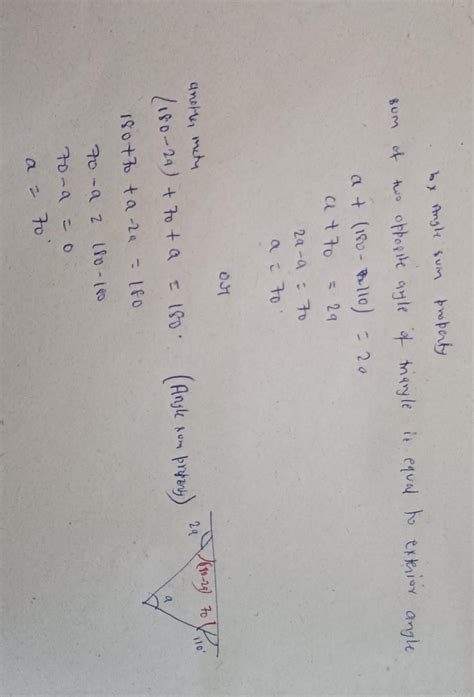 by Angle sum property
sum of two opposite angle of triangle is equal to exterior angle
a + (180 - 110) = 2a
a + 70 = 2a
2a - a = 70
a = 70°
OR
another meth
(180 - 2a) + 70 + a = 180° (Angle sum property)
180 + 70 + a - 2a = 180
70 - a = 180 - 180
70 - a = 0
a = 70°
2a
(180-2a)
70
110°
a